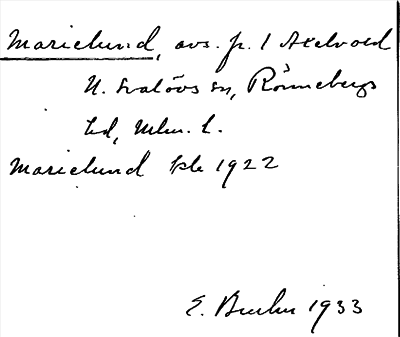 Marielund, avs. fr. 1 Axelvold
N. Svalövs sn, Rönnebergs
hd, Mlm. l.
Marielund kbr 1922
E. Brehn 1933